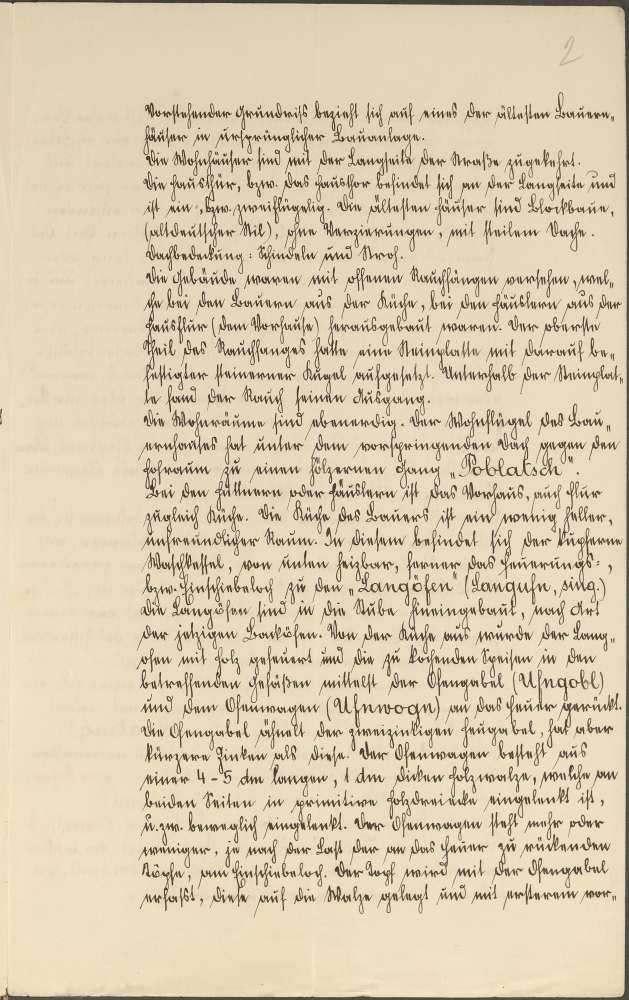 2
Vorstehender Grundriss bezieht sich auf eines der ältesten Bauern-
häuser in ursprünglicher Bauanlage.
Die Wohnhäuser sind mit der Langseite der Straße zugekehrt.
Die Hausthür, bzw. das Hausthor befindet sich an der Langseite und
ist ein-, bzw. zweiflügelig. Die ältesten Häuser sind Blockbaue,
(altdeutscher Stil), ohne Verzierungen, mit steilem Dache.
Dachbedeckung: Schindeln und Stroh.
Die Gebäude waren mit offenen Rauchfängen versehen, wel-
che bei den Bauern aus der Küche, bei den Häuslern aus der
Hausflur (dem Vorhause) herausgebaut waren. Der oberste
Theil des Rauchfanges hatte eine Steinplatte mit darauf be-
festigter steinerner Kugel aufgesetzt. Unterhalb der Steinplat-
te fand der Rauch seinen Ausgang.
Die Wohnräume sind ebenerdig. Der Wohnflügel des Bau-
ernhauses hat unter dem vorspringenden Dach gegen den
Hofraum zu einen hölzernen Gang „Poblatsch".
Bei den Hüttnern oder Häuslern ist das Vorhaus, auch Flur
zugleich Küche. Die Küche des Bauers ist ein wenig heller,
unfreundlicher Raum. In diesem befindet sich der kupferne
Waschkessel, von unten heizbar, ferner das Feuerungs-,
bzw. Einschiebeloch zu den „Langöfen" (Langufn, sing.)
Die Langöfen sind in die Stube hineingebaut, nach Art
der jetzigen Backöfen. Von der Küche aus wurde der Lang-
ofen mit Holz gefeuert und die zu kochenden Speisen in den
betreffenden Gefäßen mittelst der Ofengabel (Ufngobl)
und dem Ofenwagen (Ufnwogn) an das Feuer gerückt.
Die Ofengabel ähnelt der zweizinkigen Heugabel, hat aber
kürzere Zinken als diese. Der Ofenwagen besteht aus
einer 4-5 dm langen, 1 dm dicken Holzwalze, welche an
beiden Seiten in primitive Holzdreiecke eingelenkt ist,
u. zw. beweglich eingelenkt. Der Ofenwagen steht mehr oder
weniger, je nach der Last der an das Feuer zu rückenden
Töpfe, am Einschiebeloch. Der Topf wird mit der Ofengabel
erfasst, diese auf die Walze gelegt und mit ersterem vor-